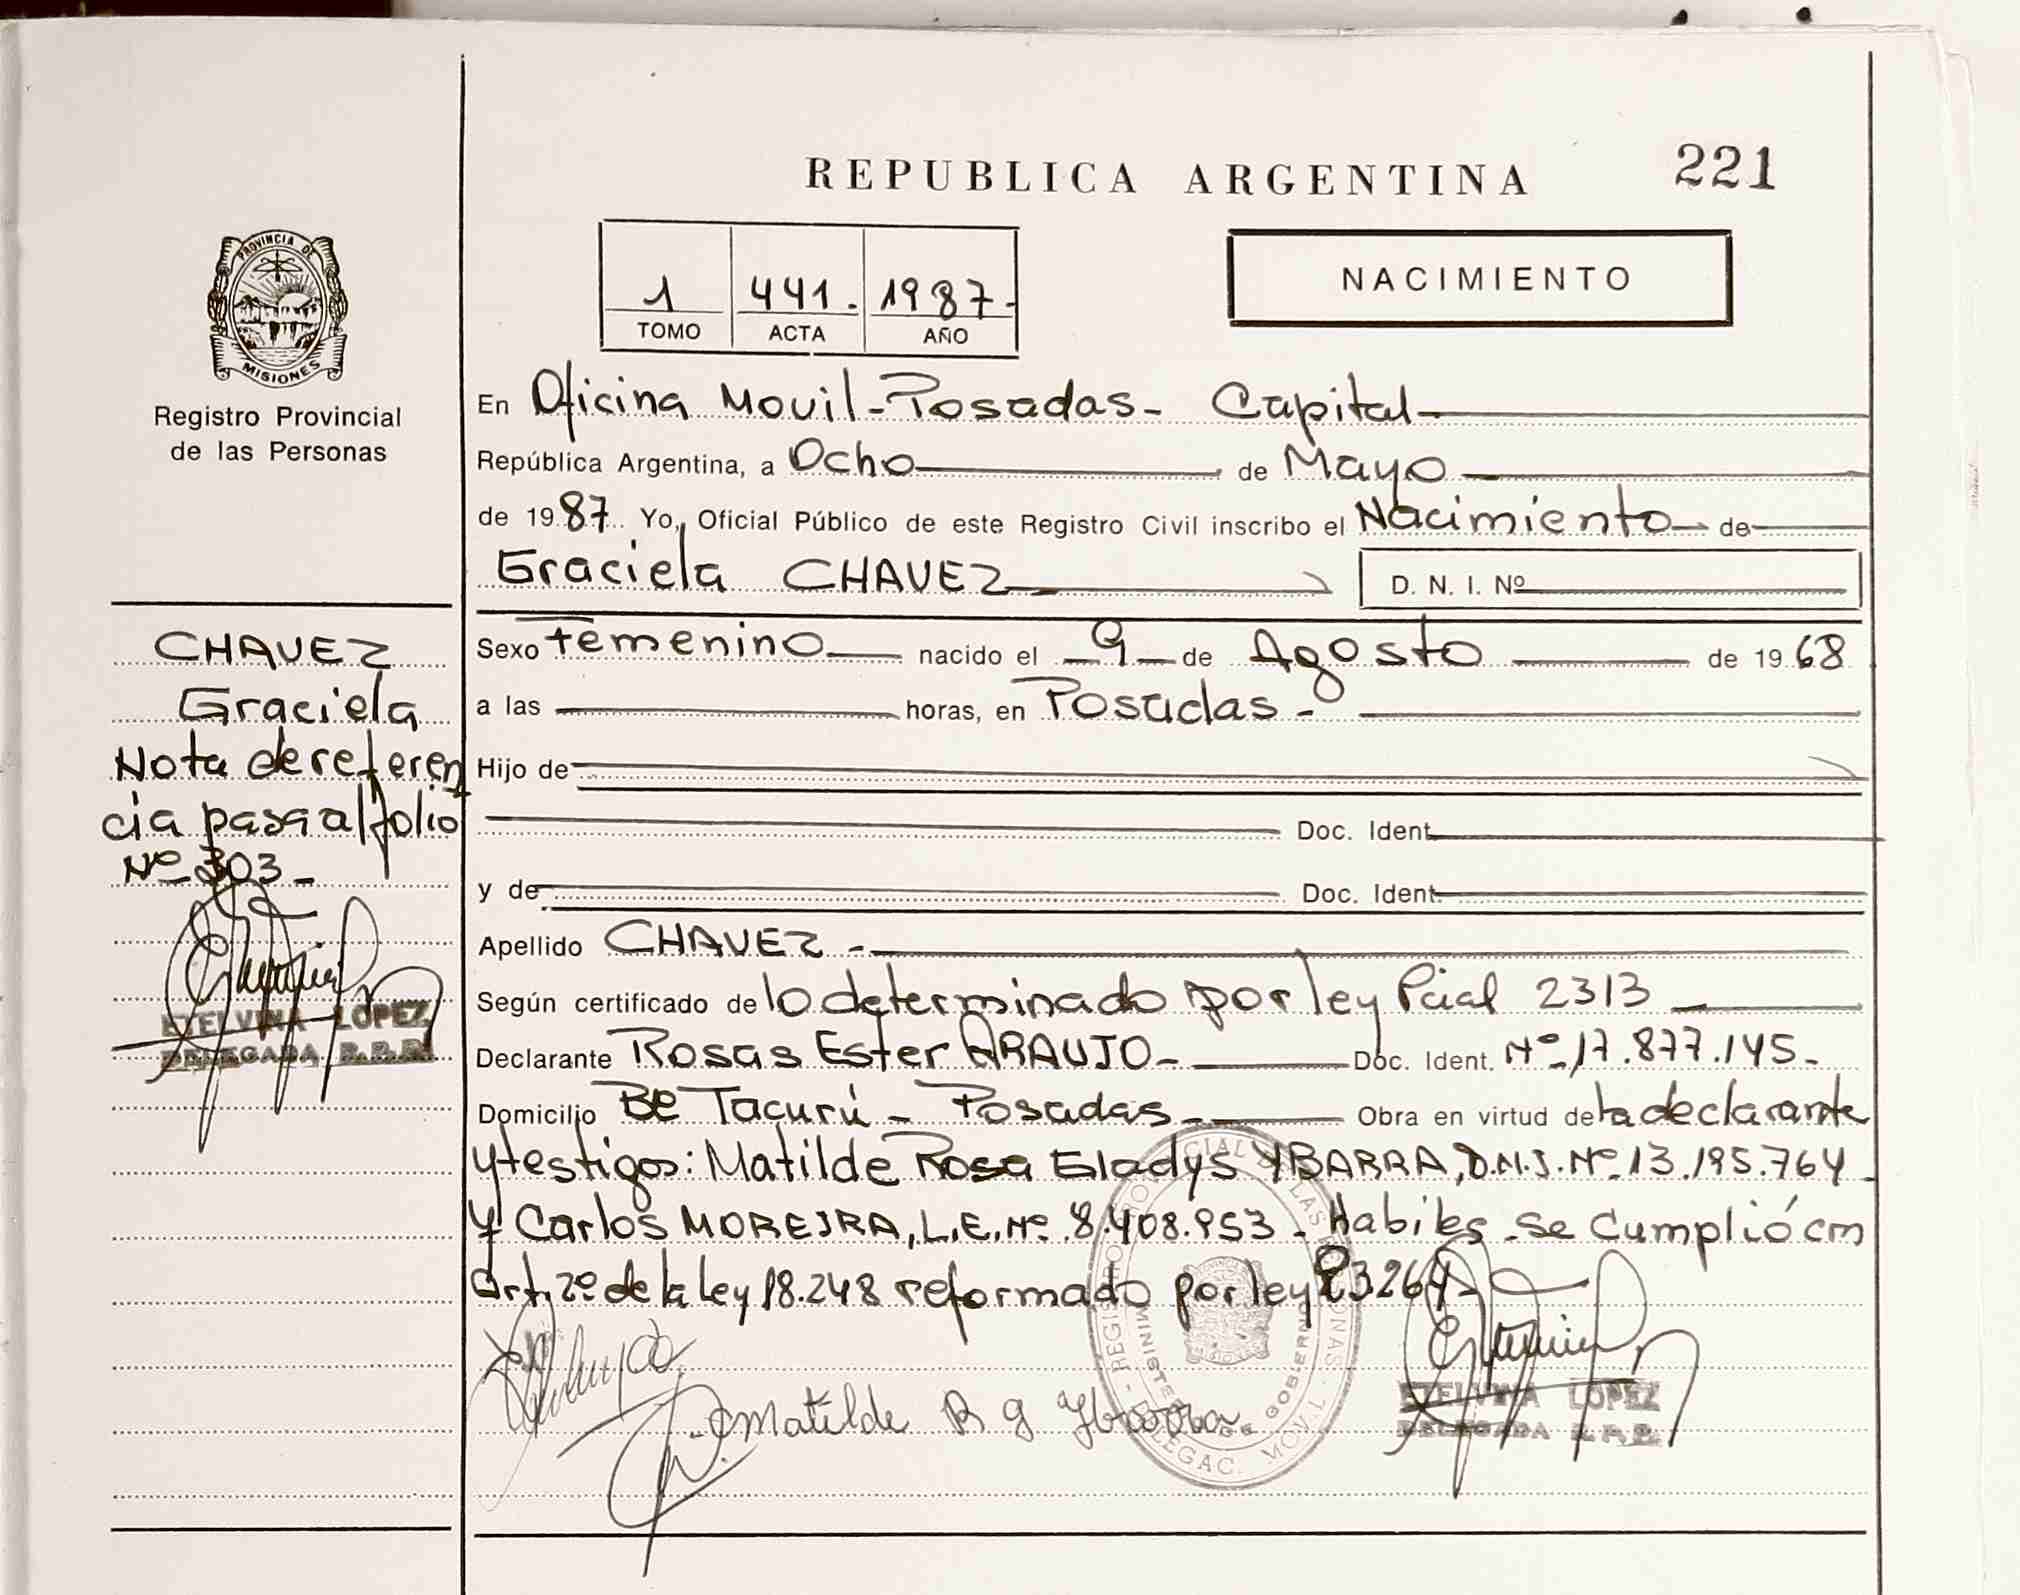 REPUBLICA ARGENTINA
221
PROVINCIA DE
MISIONES
Registro Provincial
de las Personas
1
441.
1987-
TOMO
ACTA
AÑO
NACIMIENTO
En Oficina Movil-Posadas- Capital
República Argentina, a Ocho de Mayo
de 1987 Yo, Oficial Público de este Registro Civil inscribo el Nacimiento de
Graciela CHAVEZ
D. N. I. Nº
CHAVEZ
Graciela
Nota de referen
cia pasa al folio
Nº 303-
ETELVINA LOPEZ
DELEGADA R.P.P.
Sexo Femenino nacido el 9 de Agosto de 1968
a las horas, en Posadas-
Hijo de
Doc. Ident.
y de Doc. Ident.
Apellido CHAVEZ-
Según certificado de lo determinado por ley Pcial 2313
Declarante Rosas Ester ARAUJO- Doc. Ident. Nº 17.877.145-
Domicilio Bº Tacurú- Posadas- Obra en virtud de la declarante
y testigos: Matilde Rosa Gladys YBARRA, D.N.I. Nº 13.195.764
y Carlos MOREIRA, L.E. Nº 8.408.953- Habiles-Se cumplió cm
Art. 2º de la Ley 18.248 reformado por ley 23264-
Matilde R G Ybarra
ETELVINA LOPEZ
DELEGADA R.P.P.